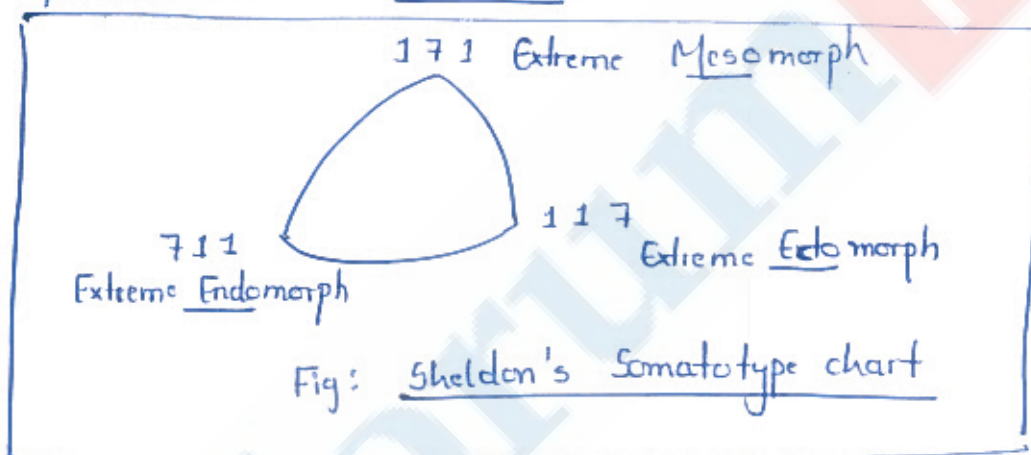 1 7 1 Extreme Mesomorph
7 1 1
Extreme Endomorph
1 1 7
Extreme Ectomorph
Fig: Sheldon's Somatotype chart